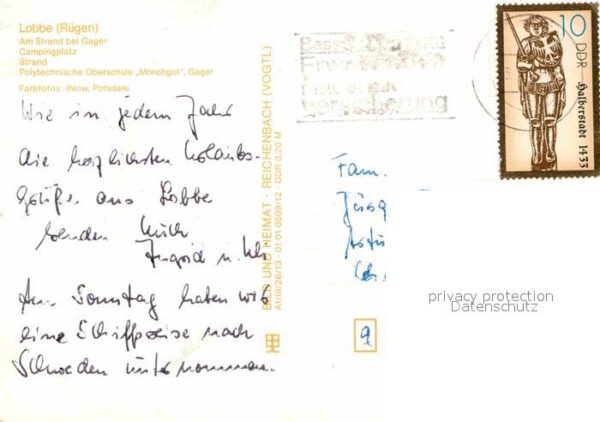 Lobbe (Rügen)
Am Strand bei Gager
Campingplatz
Strand
Polytechnische Oberschule „Mönchgut", Gager
Farbfotos: Ihlow, Potsdam
Wie in jedem Jahr
die herzlichsten Urlaubs-
grüße aus Lobbe
senden Euch
Ingrid u.
Am Sonntag haben wir
eine Schiffsreise nach
Schweden unternommen.
BILD UND HEIMAT · REICHENBACH (VOGTL)
A1/III/26/13 01 01 0509/12 · DDR 0,20 M
Fam.
10
DDR
Halberstadt 1433
privacy protection
Datenschutz